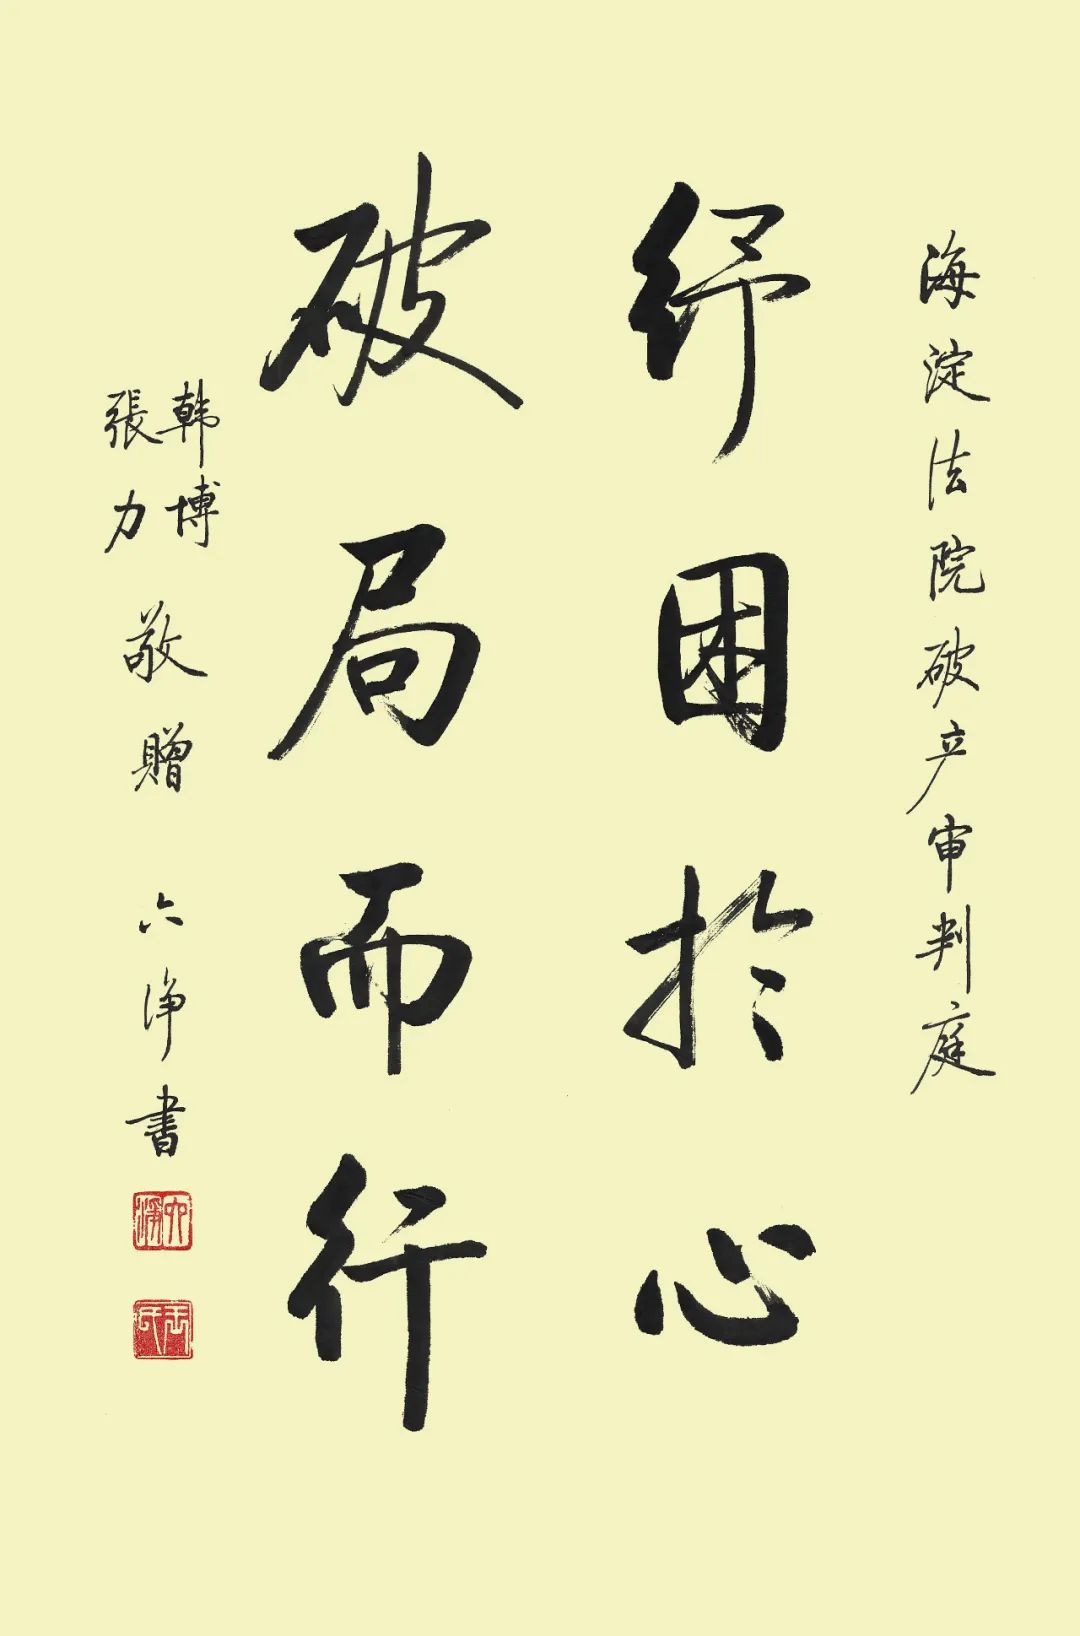 海淀法院破产审判庭
纾困於心
破局而行
韩博
張力
敬贈 六净書
六淨